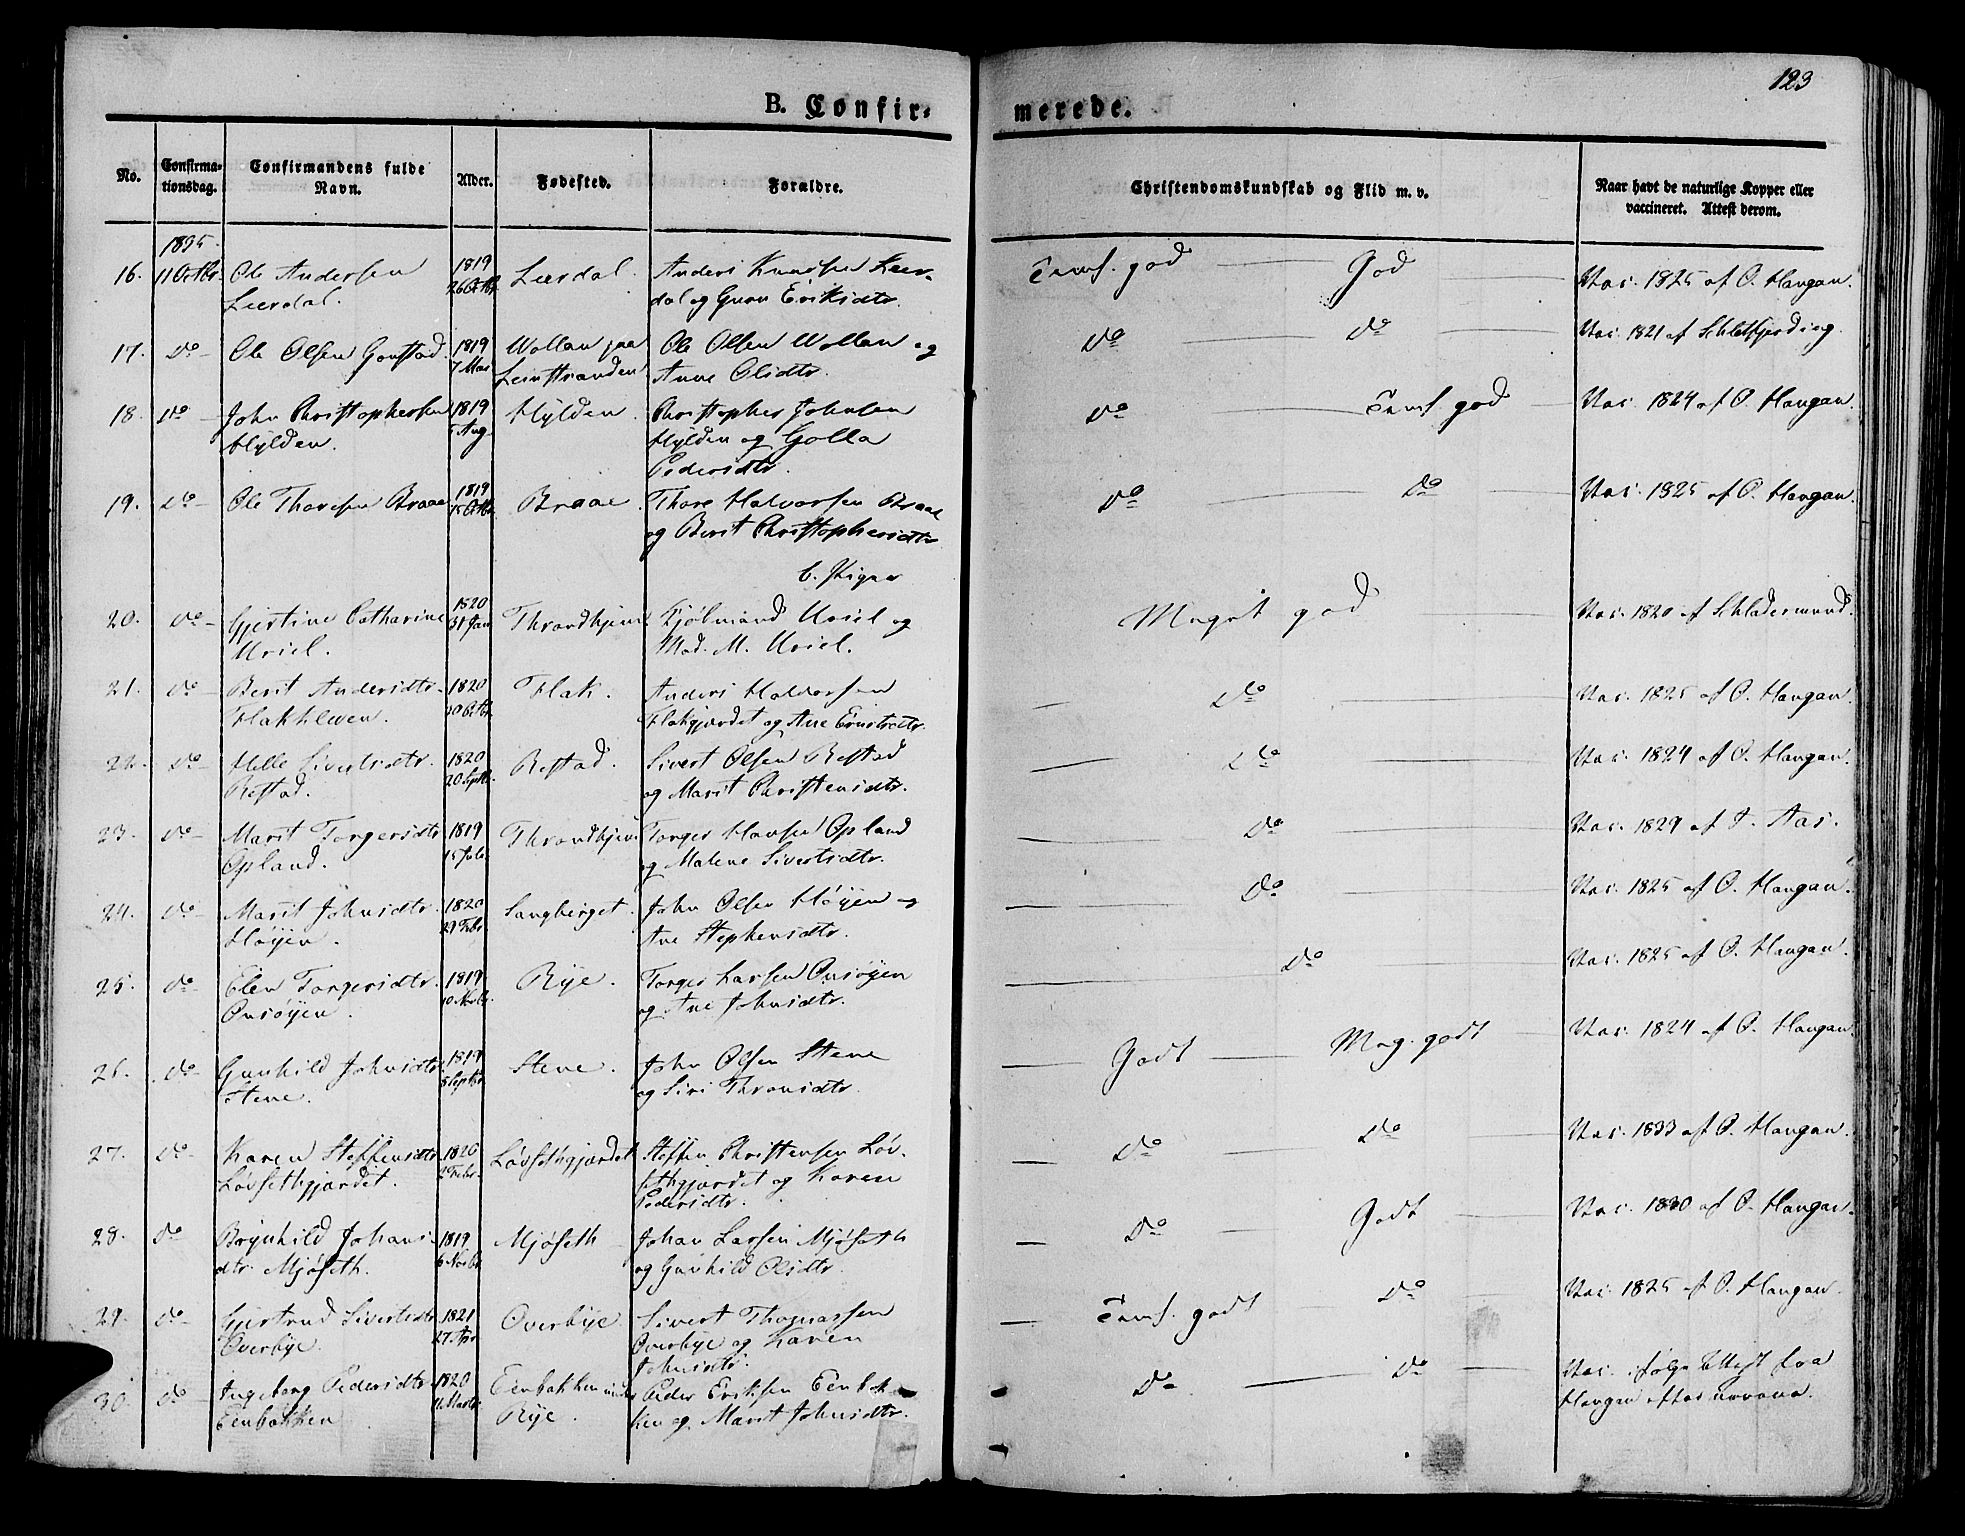 123
B. Confir-
merede.
No.
Confirma-
tionsdag.
Confirmandens fulde
Navn.
Alder.
Fødested.
Forældre.
Christendomskundskab og Flid m. v.
Naar havt de naturlige Kopper eller
vaccineret. Attest derom.
1835
16. 11 Octbr. Ole Andersen 1819 Leerdal. Anders Knudsen Leer-
Leerdal. 26 Octbr dal og Guru Eriksdtr.
Teml. god God Vac. 1825 af O. Haugan.
17. Do Ole Olsen Gaustad 1819 Wollan paa Ole Olsen Wollan og
7 Mai Leinstranden Anne Olsdtr.
Do Do Vac. 1821 af Schletsjerding.
18. Do John Christophersen 1819 Hylden. Christopher Johnsen
Hylden. Aug Hylden og Golla
Pedersdtr.
Do Teml. god Vac. 1824 af O. Haugan.
19. Do Ole Thoresen Braae 1819 Braae. Thore Halvorsen Braae
15 Octbr og Berit Christophersdtr
Do Do Vac. 1825 af O. Haugan.
b. Piger
20. Do Gjertine Catharine 1820 Throndhjem Kjøbmand Ursiel og
Ursiel. 31 Jan Mad. M. Ursiel.
Meget god Vac. 1820 af Schladermund.
21. Do Berit Andersdtr. 1820 Flak. Anders Halvorsen
Flakhleven. 20 Octbr Flakgjærdet og Ane Ernstsdtr.
Do Vac. 1825 af O. Haugan.
22. Do Helle Sivertsdtr. 1820 Restad. Sivert Olsen Restad
Restad. 20 Septbr. og Marit Christensdtr.
Do Vac. 1824 af O. Haugan.
23. Do Marit Torgersdtr 1819 Throndhjem Torger Hansen Opland
Opland. 15 og Malene Sivertsdtr.
Do Vac. 1829 af Aas.
24. Do Marit Johnsdtr. 1820 Langberget. John Olsen Høyen og
Høyen. 29 Febr Ane Stephensdtr.
Do Vac. 1825 af O. Haugan.
25. Do Elen Torgersdtr. 1819 Rye. Torger Larsen Onsøyen
Onsøyen. 10 Novbr. og Ane Johnsdtr.
Do Vac. 1825 af O. Haugan.
26. Do Gunhild Johnsdtr. 1819 Stene. John Olsen Stene
Stene. Septbr og Siri Thronsdtr.
Godt Meg. godt Vac. 1824 af O. Haugan.
27. Do Karen Steffensdtr. 1820 Løvsethgjærdet Steffen Christensen Løv-
Løvsethgjærdet. 2 Febr. sethgjærdet og Karen
Pedersdtr.
Do Do Vac. 1833 af O. Haugan.
28. Do Brynhild Johans- 1819 Mjøseth Johan Larsen Mjøseth
dtr. Mjøseth. 6 Novbr og Gunhild Olsdtr.
Do Godt Vac. 1830 af O. Haugan.
29. Do Gjertrud Sivertsdtr 1821 Overbye. Sivert Thomassen
Overbye. 27 Apr Overbye og Karen
Johnsdtr.
Teml. godt Do Vac. 1825 af O. Haugan.
30. Do Ingeborg Pedersdtr 1820 Eenbakken under Peder Eriksen Eenbak-
Eenbakken 11 Martz Rye. ken og Marit Johnsdtr.
Do Do Vac. ifølge Attest fra
Haugan